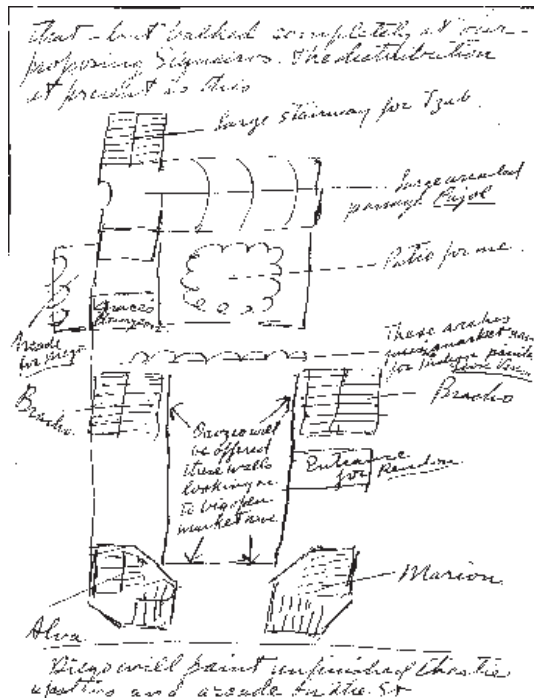 that - but balked completely at our
proposing Siqueiros. The distribution
at present is this
Large stairway for Tzab.
Large arcaded
passage Pujol
Patio for me.
Graces
Arcade
for
These arches
market
for
Bracho.
Bracho
Diego will
be offered
these walls
looking on
to big open
market
Entrance
for Rendon
Alva
Marion
Diego will paint unfinished theatre
and arcade on the St